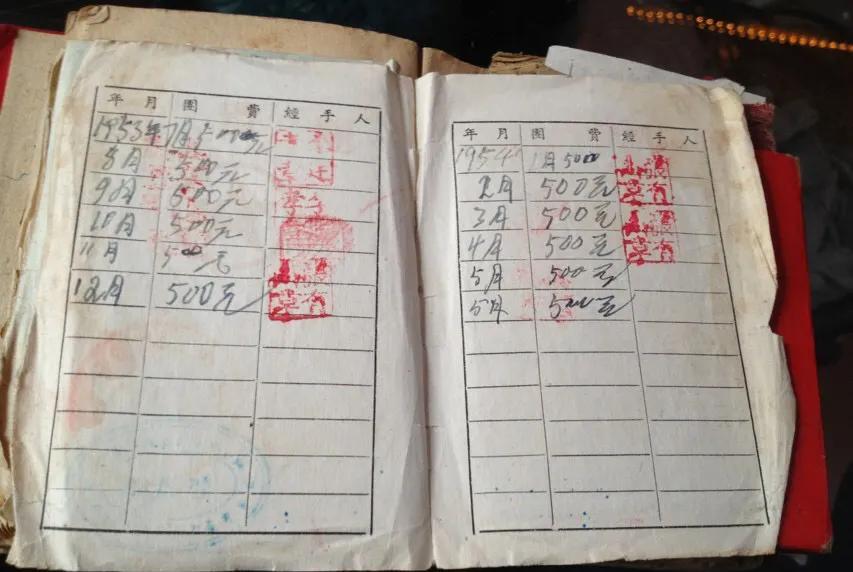 年 月 團 費 經 手 人
1953年7月 500元
8月 500元
9月 500元
10月 500元
11月 500元
12月 500元
年 月 團 費 經 手 人
1954 1月 5000
2月 500元
3月 500元
4月 500元
5月 500元
5月 500元